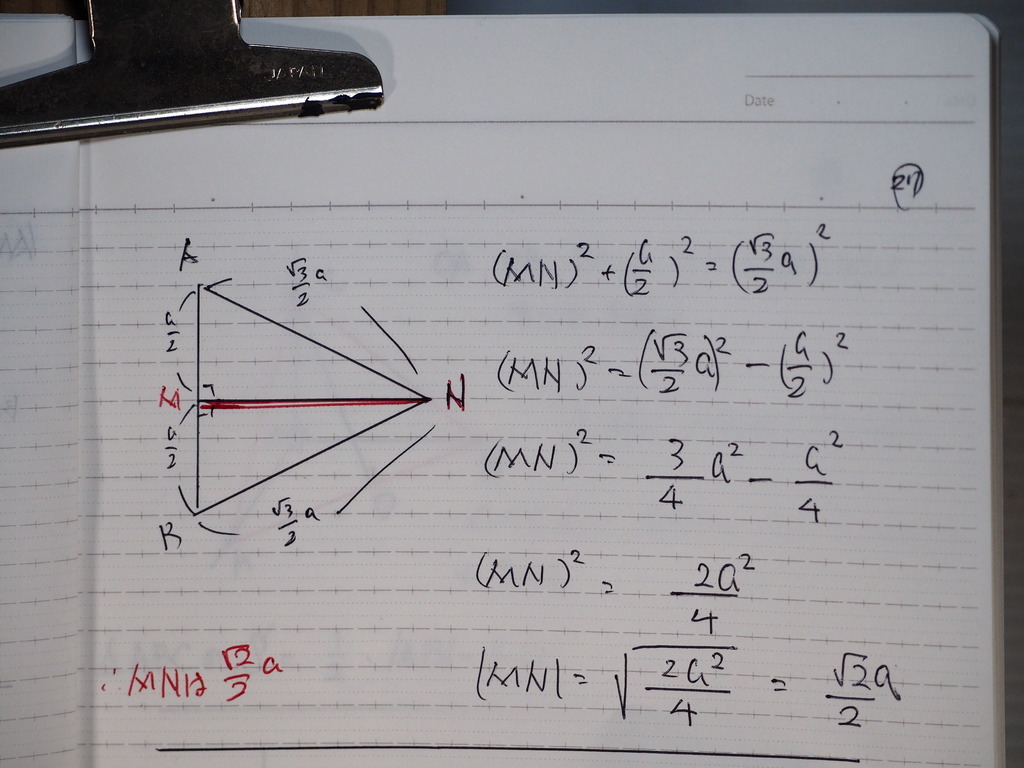 JAPAN
Date
217
A
√3/2 a
a/2
M
N
a/2
B
√3/2 a
(MN)² + (a/2)² = (√3/2 a)²
(MN)² = (√3/2 a)² - (a/2)²
(MN)² = 3/4 a² - a²/4
(MN)² = 2a²/4
|MN| = √(2a²/4) = √2a/2
∴ MNは √2/3 a